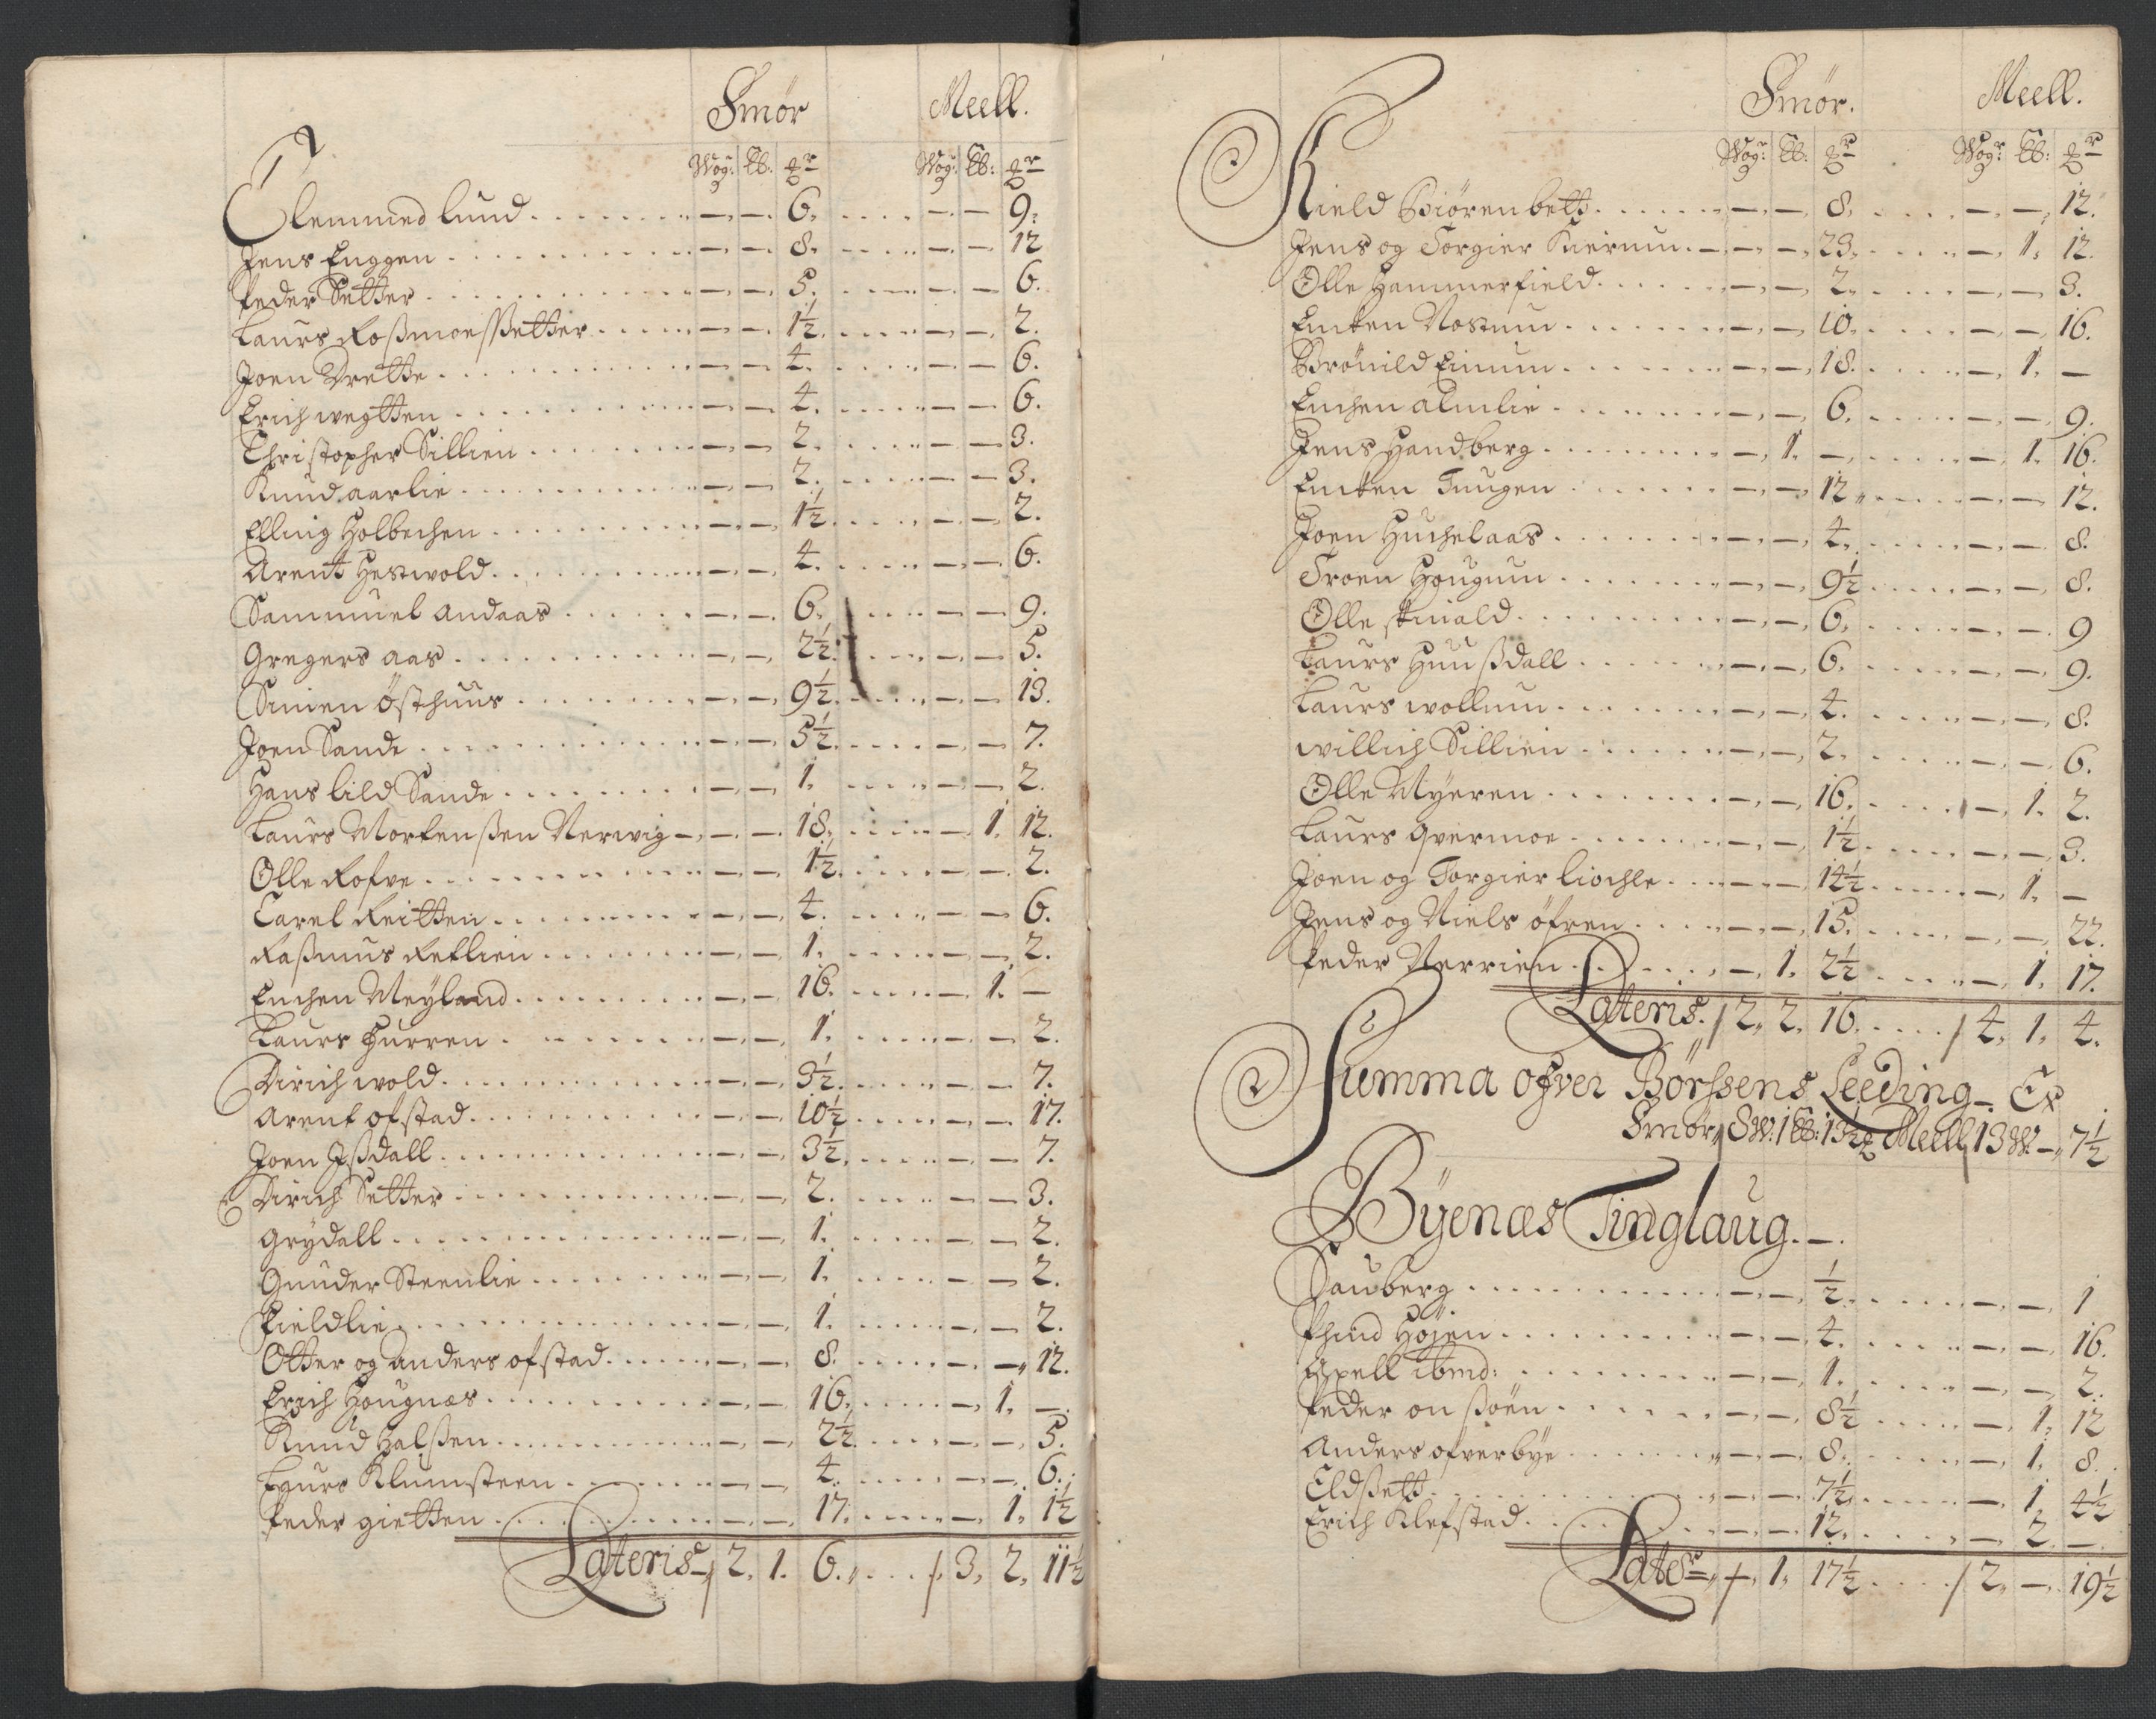 Smør Meell.
Wog: ℔: ꝶr Wog: ℔: ꝶr
Clemmed lund . . . — — 6. . . . — — 9.
Jens Enggen . . . — — 8. . . . — — 12
Peder Setter . . . — — 5. . . . — — 6.
Laurs Roßmoeßetter . . . — — 1½. . . . — — 2.
Joen Drette . . . — — 4. . . . — — 6.
Erich wegtten . . . — — 4. . . . — — 6.
Christopher Sillien . . . — — 2. . . . — — 3.
Knud aarlie . . . — — 2. . . . — — 3.
Elling Holbechen . . . — — 1½. . . . — — 2.
Arent Hestwold . . . — — 4. . . . — — 6.
Sammuel andaas . . . — — 6. . . . — — 9.
Gregers aas . . . — — 2½. . . . — — 5.
Simen Østhuus . . . — — 9½. . . . — — 13.
Joen Sande . . . — — 5½. . . . — — 7.
Hans lild Sande . . . — — 1. . . . — — 2.
Laurs Mortenßen Nerwig — — — 18. . . . — 1. 12.
Olle Rofve . . . — — 1½. . . . — — 2.
Carel Reitten . . . — — 4. . . . — — 6.
Raßmus Retlien . . . — — 1. . . . — — 2.
Enchen Meyland . . . — — 16. . . . — 1. —
Laurs Hurren . . . — — 1. . . . — — 2.
Dirich wold . . . — — 3½. . . . — — 7.
Arent ofstad . . . — — 10½. . . . — — 17.
Joen Ißdall . . . — — 3½. . . . — — 7.
Dirich Setter . . . — — 2. . . . — — 3.
Grydall . . . — — 1. . . . — — 2.
Gunder Steenlie . . . — — 1. . . . — — 2.
Kieldlie . . . — — 1. . . . — — 2.
Otter og anders ofstad . . . — — 8. . . . — — 12.
Erich Hougnæs . . . — — 16. . . . — 1. —
Knud Halßen . . . — — 2½. . . . — — 5.
Laurs Klumsteen . . . — — 4. . . . — — 6.
Peder gietten . . . — — 17. . . . — 1. 1½
Lateris — / 2. 1. 6. . . . / 3. 2. 11½
Smør. Meell.
Wogr ℔: ꝶr Wogr ℔: ꝶr
Kield Biörenbett . . . — — 8. . . . — — 12.
Jens og Torgier Kiernm. — — — 23. . . . — 1. 12.
Olle Hammerfield . . . — — 2. . . . — — 3.
Encken Nostum . . . — — 10. . . . — — 16.
Brönild Eimum . . . — — 18. . . . — 1. —
Enchen almlie . . . — — 6. . . . — — 9.
Jens Handberg . . . — 1. — . . . — 1. 16.
Encken Tungen . . . — — 12. . . . — — 12.
Joen Huchelaas . . . — — 4. . . . — — 8.
Troen Hougum . . . — — 9½ . . . — — 8.
Olle skuald . . . — — 6. . . . — — 9
Laurs Huußdall . . . — — 6. . . . — — 9.
Laurs wollum . . . — — 4. . . . — — 8.
willich Sillien . . . — — 2. . . . — — 6.
Olle Myeren . . . — — 16. . . . — 1. 2.
Laurs qvermoe . . . — — 1½ . . . — — 3.
Joen og Torgier liochle . . . — — 14½ . . . — 1. —
Jens og Niels öfren . . . — — 15. . . . — — 22.
Peder Nerrien . . . — 1. 2½ . . . — 1. 17.
Lateris. / 2. 2. 16. . . . / 4. 1. 4.
Summa ofver Börssens Leeding — Er
Smör, 8 W: 1 ℔: 13½ ꝶ Meell 13 W — 7½
Byenæs Tinglaug. —.
Sauberg . . . — — ½. . . . — — 1
Phind Höjen . . . — — 4. . . . — — 16.
Axell ibmd: . . . — — 1. . . . — — 2.
Peder on ßöen . . . — — 8½ . . . — 1. 12
Anders ofverbye . . . — — 8. . . . — 1. 8.
Eldßett . . . — — 7½ . . . — 1. 4½
Erich Klefstad . . . — — 12. . . . — 2. —
Laters / — 1. 17½ . . . / 2. — 19½